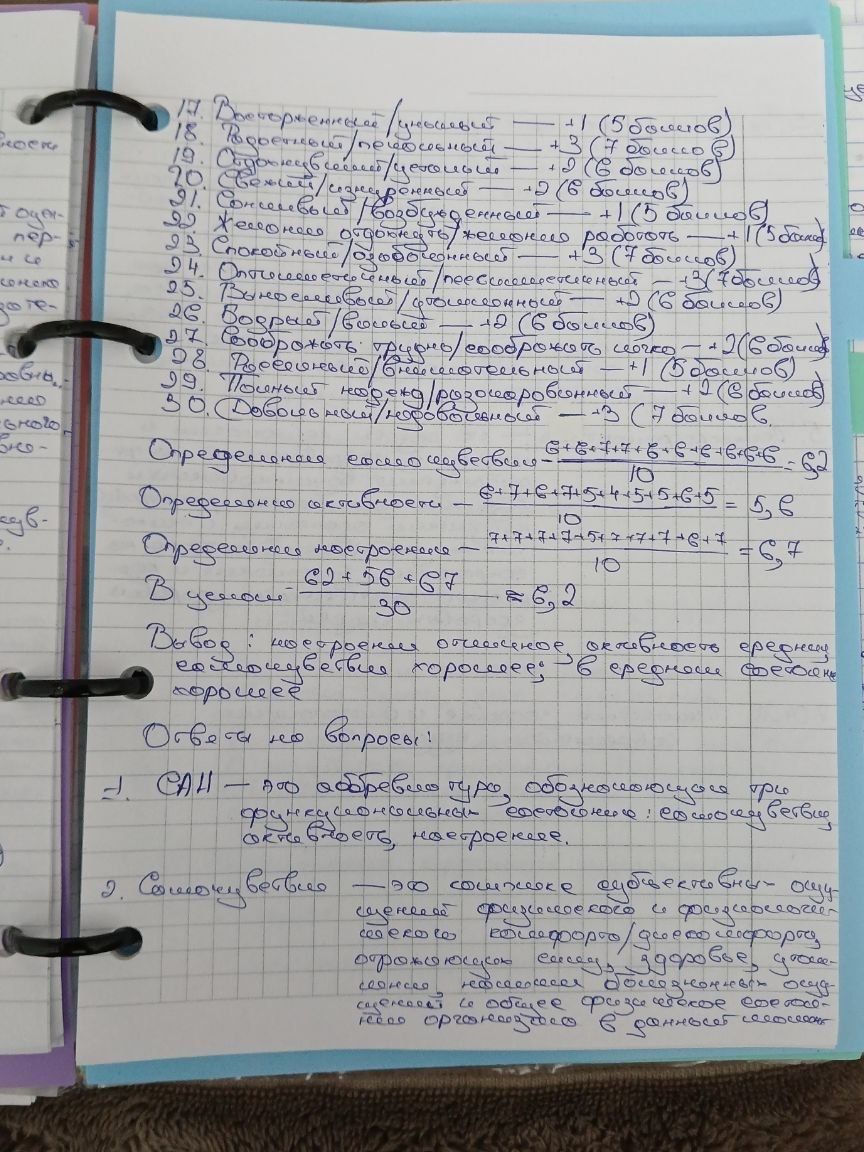 17. Восторженный/унылый — +1 (5 баллов)
18. Радостный/печальный — +3 (7 баллов)
19. Отдохнувший/усталый — +2 (6 баллов)
20. Свежий/изнуренный — +2 (6 баллов)
21. Сонливый/возбужденный — +1 (5 баллов)
22. Желание отдохнуть/желание работать — +1 (5 баллов)
23. Спокойный/озабоченный — +3 (7 баллов)
24. Оптимистичный/пессимистичный — +3 (7 баллов)
25. Выносливый/утомленный — +2 (6 баллов)
26. Бодрый/вялый — +2 (6 баллов)
27. Соображать трудно/соображать легко — +2 (6 баллов)
28. Рассеянный/внимательный — +1 (5 баллов)
29. Полный надежд/разочарованный — +2 (6 баллов)
30. Довольный/недовольный — +3 (7 баллов.
Определение самочувствия - 6+6+7+7+6+6+6+6+6+6 / 10 = 6,2
Определение активности - 6+7+6+7+5+4+5+5+6+5 / 10 = 5,6
Определение настроения - 7+7+7+7+5+7+7+7+6+7 / 10 = 6,7
В целом - 62+56+67 / 30 ≈ 6,2
Вывод: настроение отличное, активность средняя,
самочувствие хорошее; в среднем состояние
хорошее
Ответы на вопросы:
1. САН — это аббревиатура, обозначающая три
функциональных состояния: самочувствие,
активность, настроение.
2. Самочувствие — это комплекс субъективных ощу-
щений физического и физиологи-
ческого комфорта/дискомфорта,
отражающую силу, здоровье, утом-
ление, наличие болезненных ощу-
щений и общее физическое состоя-
ние организма в данный момент